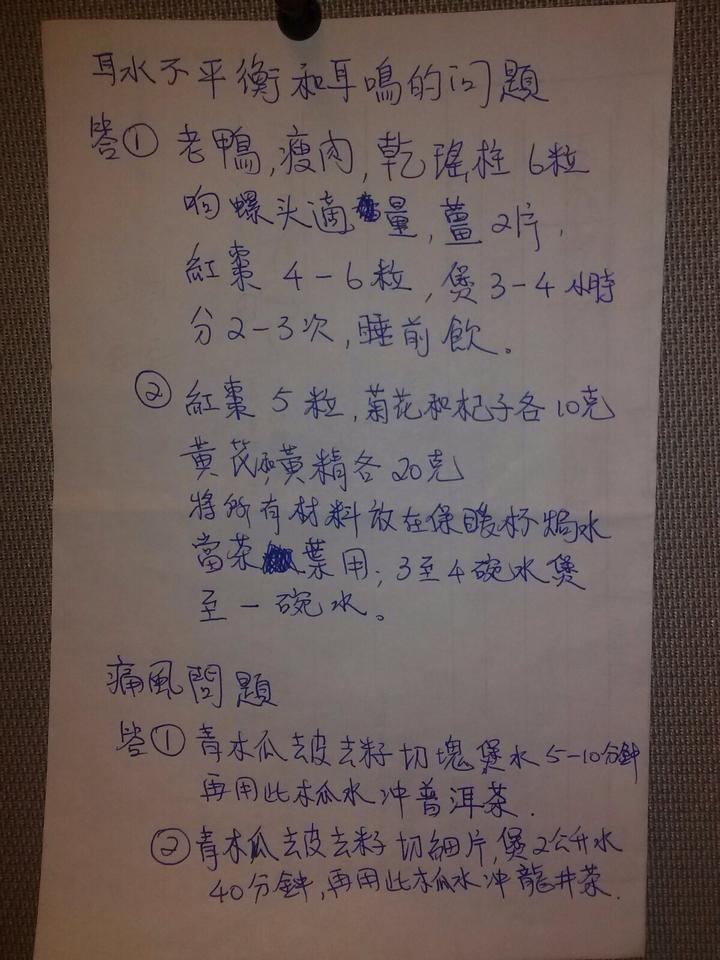 耳水不平衡和耳鳴的问題
答① 老鴨,瘦肉,乾瑤柱6粒
响螺头適量,薑2片,
紅棗 4-6粒,煲3-4小時
分2-3次,睡前飲。
② 紅棗5粒,菊花和杞子各10克
黃芪和黃精各20克
將所有材料放在保暖杯焗水
當茶葉用;3至4碗水煲
至一碗水。
痛風問題
答① 青木瓜去皮去籽切塊煲水5-10分鐘
再用此木瓜水冲普洱茶.
② 青木瓜去皮去籽切細片,煲2公升水
40分鐘,再用此木瓜水冲龍井茶.